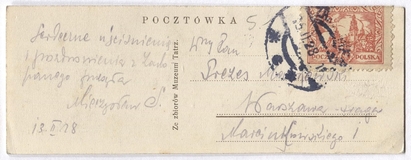 POCZTÓWKA
Serdeczne uściśnienia
i pozdrowienia z Zako
panego przesyła
Mieczysław S.
13.II.28
Ze zbiorów Muzeum Tatrz.
WPan
Prezes
Warszawa Praga
Marcinkowskiego 1
POCZTA POLSKA